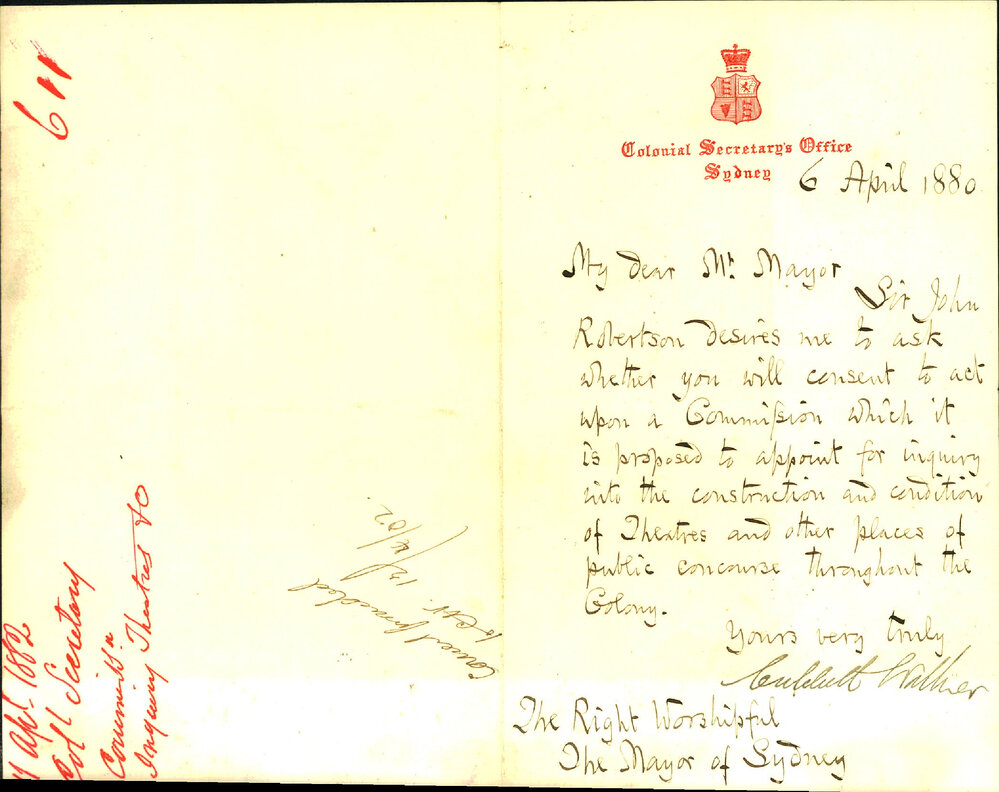 Colonial Secretary's Office
Sydney
6 April 1880
My dear Mr. Mayor
Sir John
Robertson desires me to ask
whether you will consent to act
upon a Commission which it
is proposed to appoint for inquiry
into the construction and condition
of Theatres and other places of
public concourse throughout the
Colony.
Yours very truly
Critchett Walker
The Right Worshipful
The Mayor of Sydney
611
Apl. 1882
Col Secretary
Inquiry Theatres &c